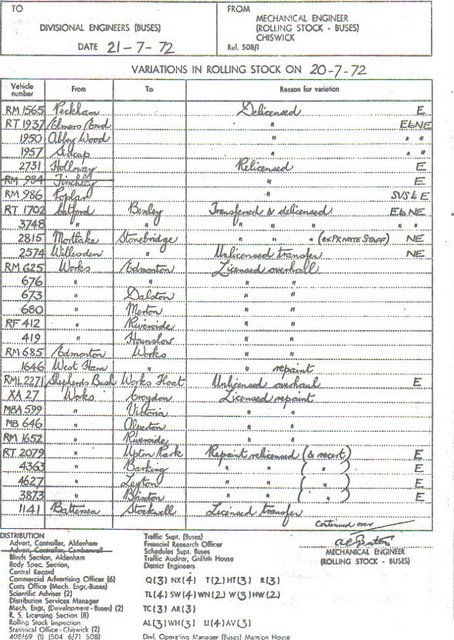 TO
DIVISIONAL ENGINEERS (BUSES)
DATE 21-7-72
FROM
MECHANICAL ENGINEER
(ROLLING STOCK - BUSES)
CHISWICK
Rel. 508/1
VARIATIONS IN ROLLING STOCK ON 20-7-72
Vehicle number From To Reason for variation
RM 1565 Peckham Delicensed E
RT 1937 Elmers End " E&NE
1950 Abbey Wood " " "
1957 Sidcup " " "
2731 Holloway Relicensed E
RM 984 Finchley " E
RM 986 Poplar " SVS & E
RT 1702 Catford Bexley Transferred & delicensed E&NE
3748 " " " " " "
2815 Mortlake Stonebridge " " " (EX PRIVATE STAFF) NE
2574 Willesden " Unlicensed transfer NE
RM 625 Works Edmonton Licensed overhaul
676 " " " "
673 " Dalston " "
680 " Merton " "
RF 412 " Riverside " "
419 " Hounslow " "
RM 685 Edmonton Works " "
1646 West Ham " " repaint
RML 2271 Shepherds Bush Works Float Unlicensed overhaul E
XA 27 Works Croydon Licensed repaint
MBA 599 " Victoria " "
MB 646 " " "
RM 1652 " Riverside " "
RT 2079 " Upton Park Repaint relicensed (& recert) E
4363 " Barking " " ( " ) E
4627 " Leyton " " ( " ) E
3873 " Brixton " " ( " ) E
1141 Battersea Stockwell Licensed transfer
Continued over
MECHANICAL ENGINEER
(ROLLING STOCK - BUSES)
DISTRIBUTION
Advert. Controller, Aldenham
Advert. Controller, Camberwell
Blinds Section, Aldenham
Body Spec. Section,
Central Record
Commercial Advertising Officer (6)
Costs Office (Mech. Engr.-Buses)
Scientific Adviser (2)
Distribution Services Manager
Mech. Engr. (Development - Buses) (2)
R. S. Licensing Section (8)
Rolling Stock Inspection
Statistical Office - Chiswick (2)
408/169 (1) (504 6/71 508)
Traffic Supt. (Buses)
Financial Research Officer
Schedules Supt. Buses
Traffic Auditor, Griffith House
District Engineers
Q(3) NX(4) T(2) HT(3) R(3)
TL(4) SW(4) WN(2) W(3) HW(2)
TC(3) AR(3)
AL(3) WH(3) U(4) AV(3)
Divl. Operating Manager (Buses) Mansion House